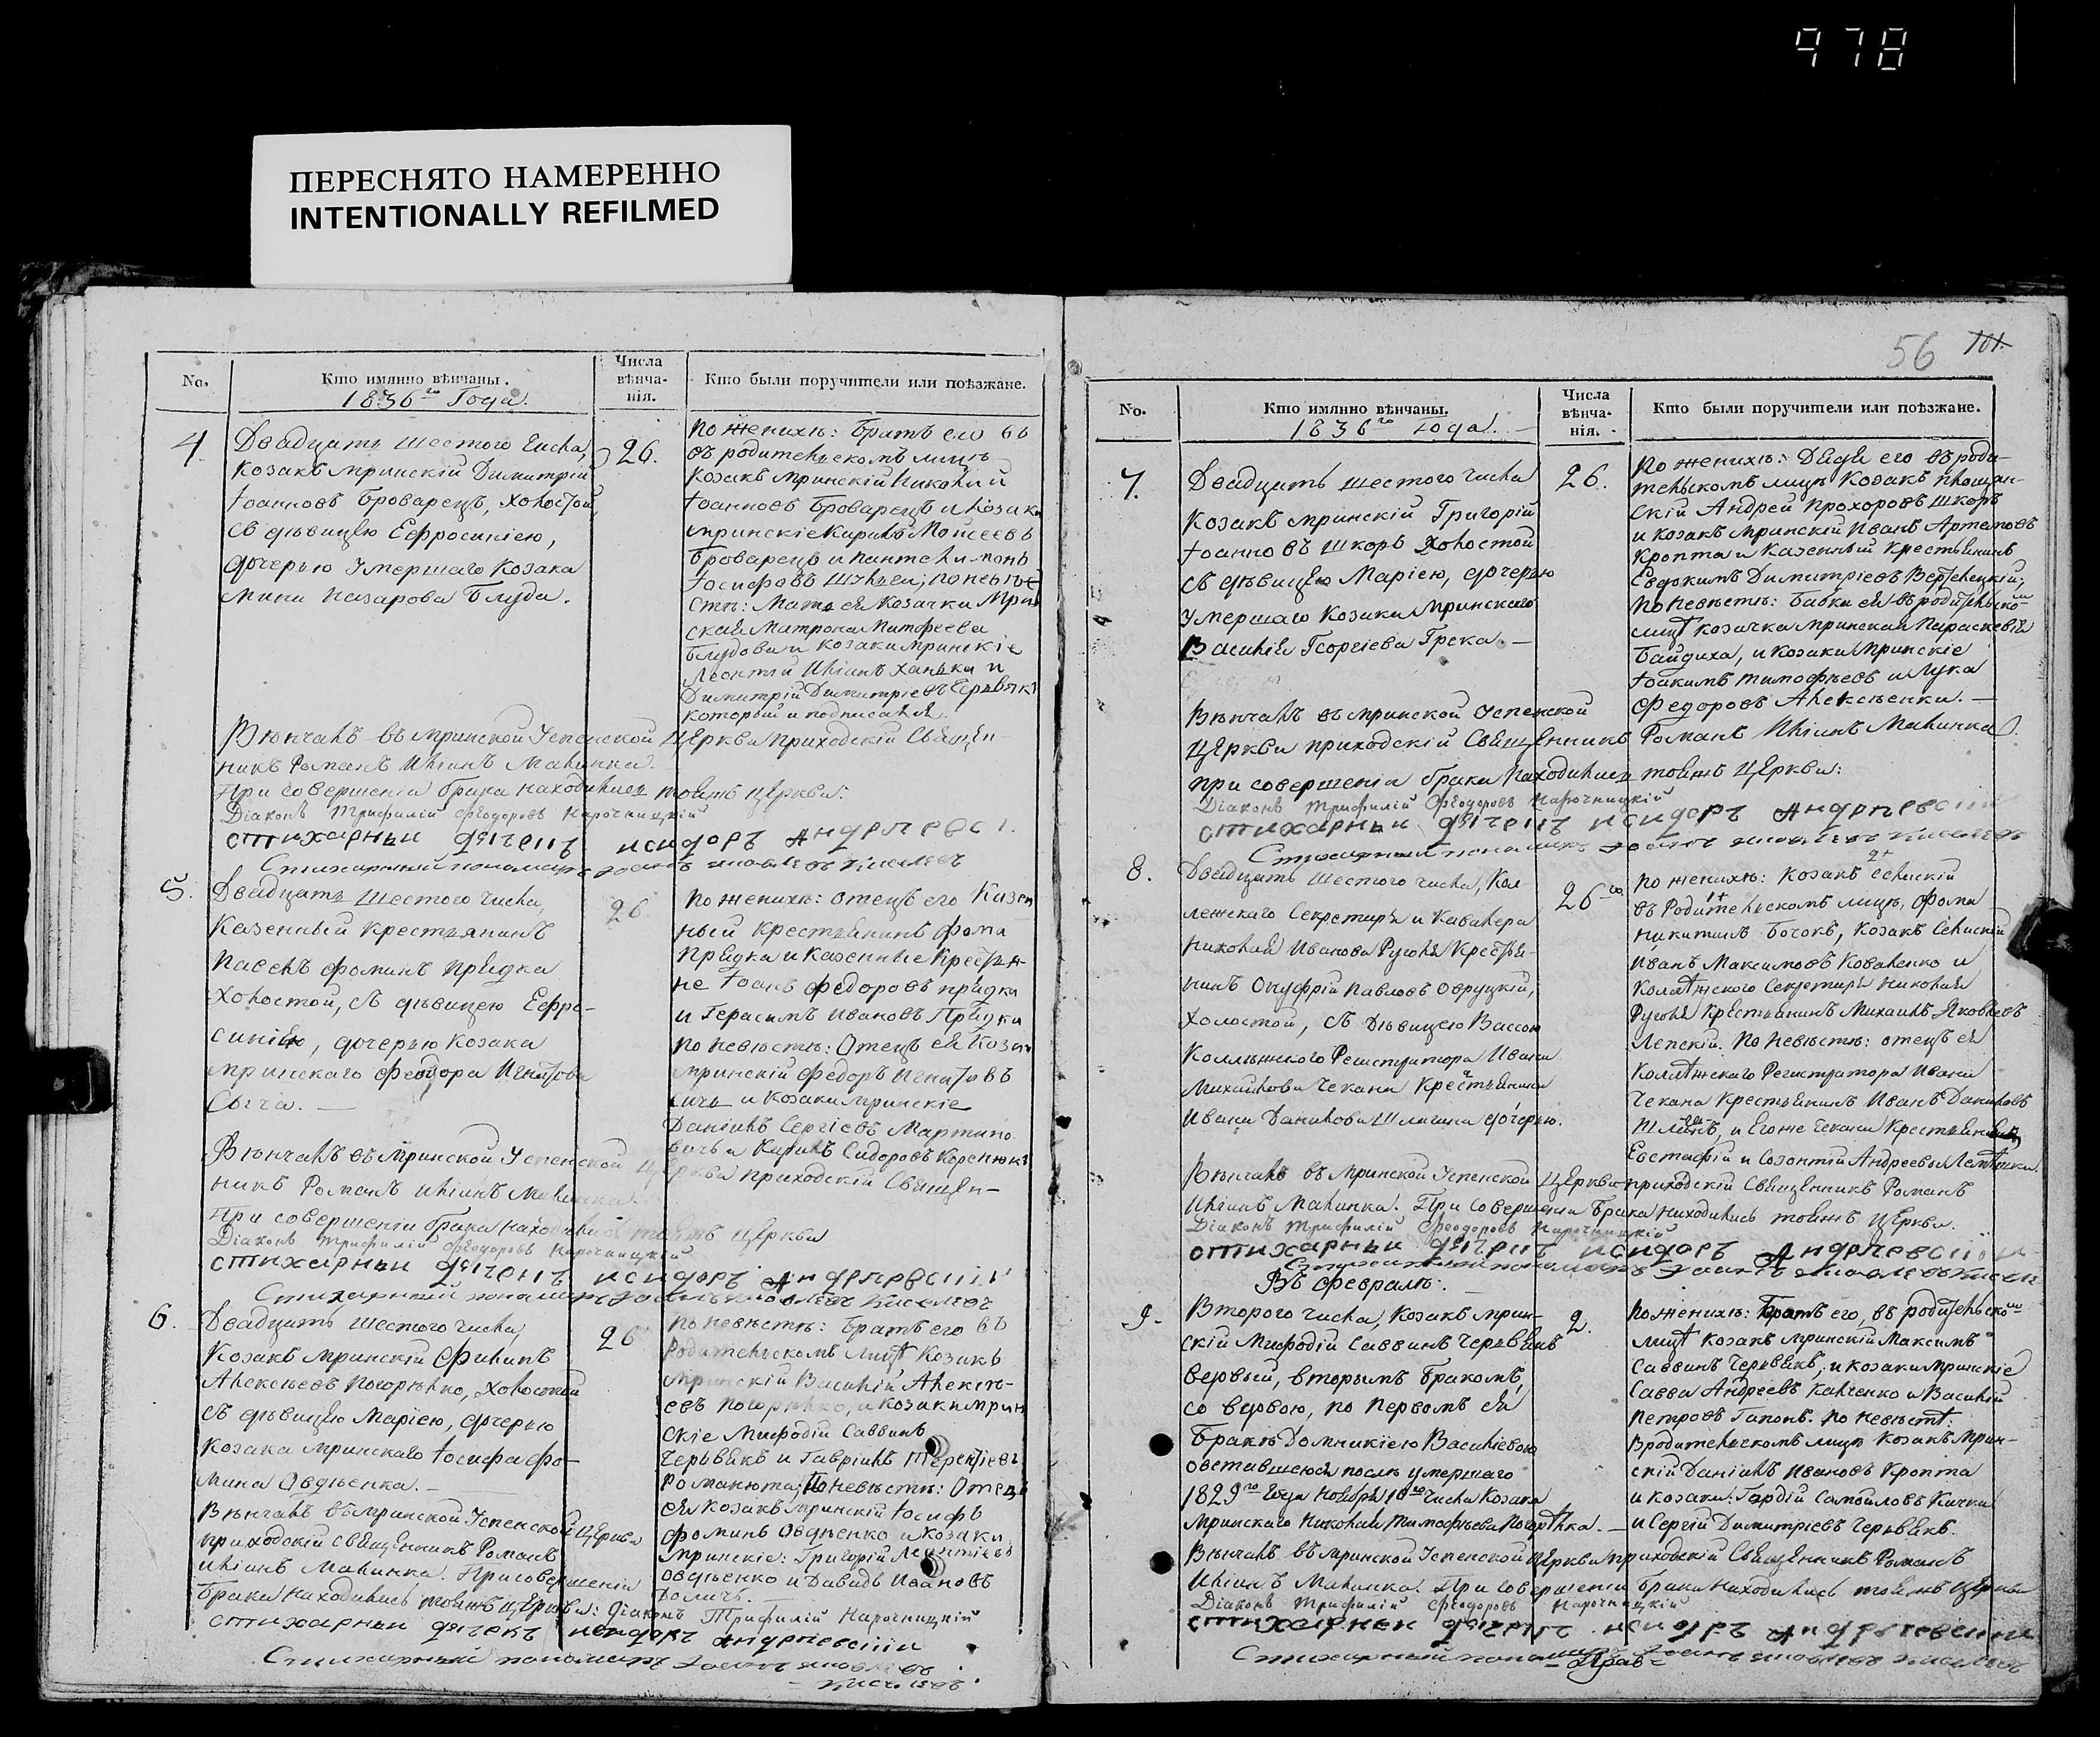 978
ПЕРЕСНЯТО НАМЕРЕННО
INTENTIONALLY REFILMED
No.
Кто имянно вѣнчаны.
1836го Года.
Числа
вѣнча-
нія.
Кто были поручители или поѣзжане.
4.
Двадцать шестого числа,
козакъ мринскій Димитрій
Іоанновъ Броварецъ, холостой,
съ дѣвицею Евфросиніею,
дочерью умершаго козака
Мины Назарова Блуда.
26.
По женихѣ: братъ его въ
въ родительскомъ лицѣ
козакъ мринскій Николай
Іоанновъ Броварецъ и козаки
мринскіе Кирилъ Моисеевъ
Броварецъ и Пантелимонъ
Іосифовъ; по невѣ-
стѣ: Мать ея козачка Мрин-
ская Матрона Матфеева
Блудова и козаки мринскіе
Леонтій Иліинъ Ханька и
Димитрій Димитріевъ
который и подписался.
Вѣнчалъ въ мринской Успенской Церкви приходскій Священ-
никъ Романъ Иліинъ Малинка.
При совершеніи брака находились тояжъ Церкви:
Діаконъ Трифилій Феодоровъ Нарочницкій
стихарный дячекъ Исидоръ Андріевскі
Стихарный пономарь Іоаннъ Киселевъ
5.
Двадцать шестого числа,
Казенный крестьянинъ
Павелъ Фоминъ Прядка
холостой, съ дѣвицею Ефро-
синіею, дочерью козака
мринскаго Феодора Игнатова
Сыча.
26
По женихѣ: отецъ его Казен
ный крестьянинъ Фома
Прядка и казенные крестьян-
не Іоанъ Федоровъ Прядка
и Герасимъ Ивановъ Прядка
По невѣстѣ: Отецъ ея козакъ
мринскій Федоръ Игнатовъ
Сичь и козаки мринскіе
Даніилъ Сергіевъ Мартино
вичь и Кирилъ Сидоровъ Коренюкъ
Вѣнчалъ въ мринской Успенской Церкви приходскій Священ-
никъ Романъ Иліинъ Малинка.
При совершеніи брака находились тояжъ Церкви
Діаконъ Трифилій Феодоровъ Нарочницкій
стихарный дячекъ Исидоръ Андріевскій
Стихарный пономарь Іоаннъ Киселевъ
6.
Двадцать шестого числа,
Козакъ мринскій Филипъ
Алексѣевъ Погорѣлко, холостой
съ дѣвицею Маріею, дочерью
козака мринскаго Іосифа Фо-
мина Овдѣенка.
26
По невѣстѣ: Братъ его въ
Родительскомъ лицѣ Козакъ
мринскій Василій Алексѣ-
евъ Погорѣлко, и козаки мрин
скіе Мифодій Саввинъ
Черьвякъ и Гавріилъ Терентіевъ
Романюта; По невѣстѣ: Отецъ
ея козакъ мринскій Іосифъ
Фоминъ Овдѣенко и козаки
мринскіе: Григорій Леонтіевъ
Овдѣенко и Давидъ Ивановъ
Вѣнчалъ въ мринской Успенской Церкви
приходскій Священникъ Романъ
Иліинъ Малинка. При совершеніи
Брака находились тояжъ Церкви: Діаконъ Трифилій Нарочницкій
стихарный дячекъ Исидоръ Андріевскій
Стихарный пономарь Іоаннъ
Киселевъ
56 101
No.
Кто имянно вѣнчаны.
1836го Года.
Числа
вѣнча-
нія.
Кто были поручители или поѣзжане.
7.
Двадцать шестого числа
Козакъ мринскій Григорій
Іоанновъ Шкоръ холостой
съ дѣвицею Маріею, дочерью
умершаго козака мринскаго
Василія Георгіева Грека.
26.
По женихѣ: Дядя его въ роди-
тельскомъ лицѣ козакъ площан-
скій Андрей Прохоровъ Шкоръ
и козакъ мринскій Иванъ Артемовъ
Кропта и казенный крестьянинъ
Евдокимъ Димитріевъ
По невѣстѣ: Бабка ея въ родительском
лицѣ козачка мринская Параскевія
Байдиха, и козаки мринскіе
Іоакимъ Тимофѣевъ и Лука
Федоровъ Алексѣенки.
Вѣнчалъ въ мринской Успенской
Церкви приходскій Священникъ Романъ Иліинъ Малинка.
при совершеніи брака находились тояжъ Церкви:
Діаконъ Трифилій Феодоровъ Нарочницкій
стихарный дячекъ Исидоръ Андріевскій
Стихарный пономарь Іоаннъ Киселевъ
8.
Двадцать шестого числа, Кол-
лежскаго Секретаря и Кавалера
Николая Иванова Крестья-
нинъ Онуфрій Павловъ Овруцкій,
холостой, съ дѣвицею Вассою
Коллежского Регистратора Ивана
Михайлова Чекана крестьянина
Ивана Данилова дочерью.
26го
По женихѣ: Козакъ
въ Родительскомъ лицѣ, Фома
Никитинъ Бочокъ, козакъ
Иванъ Максимовъ Коваленко и
Колежского Секретаря Николая
крестьянинъ Михаилъ Яковлевъ
Лепскій. По невѣстѣ: отецъ ея
Колежскаго Регистратора Ивана
Чекана крестьянинъ Иванъ Даниловъ
и Егоже Чекана крестьяне
Евстафій и Созонтій Андреевы
Вѣнчалъ въ мринской Успенской Церкви приходскій Священникъ Романъ
Иліинъ Малинка. При совершеніи Брака находились тояжъ Церкви.
Діаконъ Трифилій Феодоровъ Нарочницкій
стихарный дячекъ Исидоръ Андріевскій
Стихарный пономарь Іоаннъ
Въ Февралѣ:
9.
Второго числа, козакъ мрин-
скій Мифодій Саввинъ Черьвякъ
Первый, вторымъ бракомъ,
со вдовою, по первомъ ея
Бракѣ Домникіею Василіевою
оставшеюся послѣ умершаго
1829го Года Ноября 10го числа козака
мринскаго Николая Тимофѣева Погорѣлка.
2.
По женихѣ: Братъ его, въ родительском
лицѣ козакъ мринскій Максимъ
Саввинъ Черьвякъ; и козаки мринскіе
Савва Андреевъ Калченко и Василій
Петровъ Гапонъ. По невѣстѣ:
Вродительскомъ лицѣ козакъ мрин-
скій Даніилъ Ивановъ Кропта
и козаки: Гордій Самойловъ Кичка
и Сергій Димитріевъ Черьвякъ.
Вѣнчалъ въ мринской Успенской Церкви приходскій Священникъ Романъ
Иліинъ Малинка. При совершеніи Брака находились тояжъ Церкви
Діаконъ Трифилій Феодоровъ Нарочницкій
стихарный дячекъ Исидоръ Андріевскій
Стихарный пономарь Іоаннъ Киселевъ